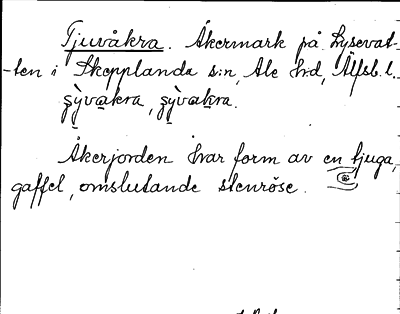 Tjuvåkra. Åkermark på Lysevat-
-ten i Skepplanda s:n, Ale h:d, Älfsb. l.
ʂỳvakra, ʂỳvakra.
Åkerjorden har form av en tjuga,
gaffel, omslutande stenröse.